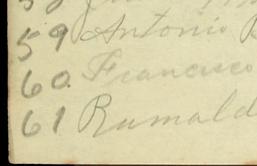 59 Antonio
60 Francisco
61 Rumald